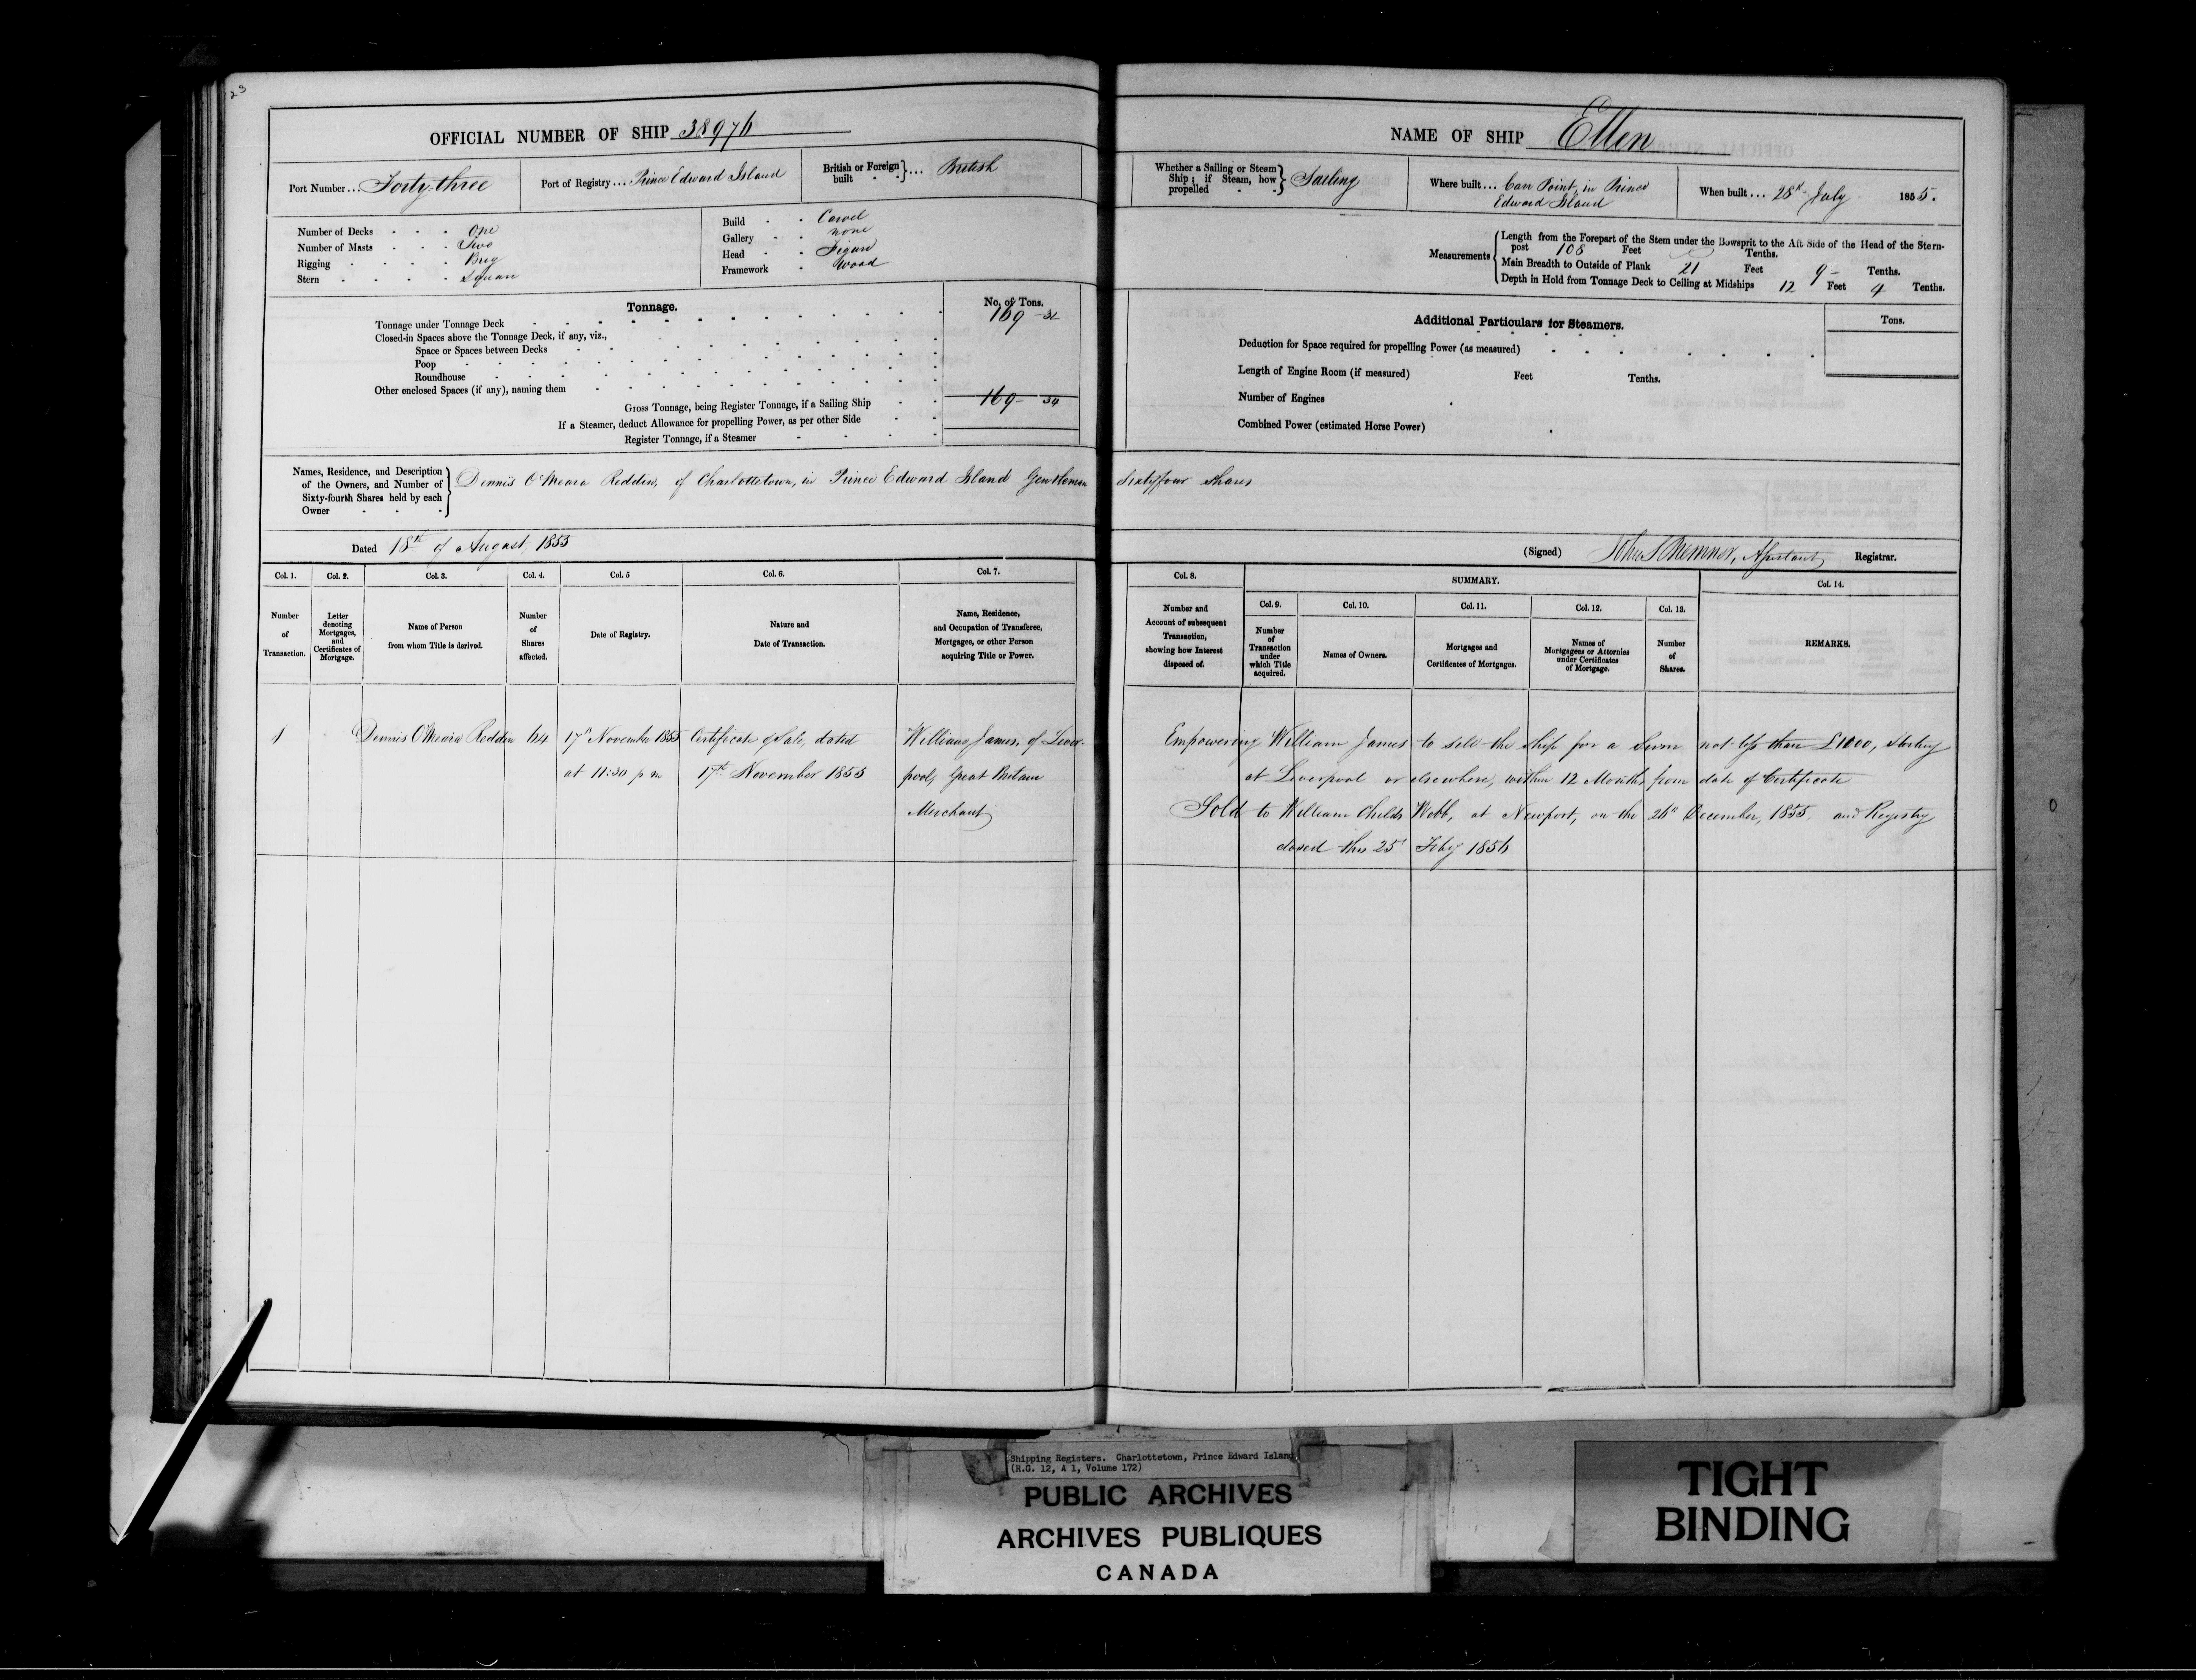 23
OFFICIAL NUMBER OF SHIP 38976
Port Number... Forty-three
Port of Registry... Prince Edward Island
British or Foreign built } ... British
Number of Decks One
Number of Masts Two
Rigging Brig
Stern Square
Build Carvel
Gallery none
Head Figure
Framework Wood
Tonnage.
No. of Tons.
Tonnage under Tonnage Deck 169
Closed-in Spaces above the Tonnage Deck, if any, viz.,
Space or Spaces between Decks
Poop
Roundhouse
Other enclosed Spaces (if any), naming them
Gross Tonnage, being Register Tonnage, if a Sailing Ship 169
If a Steamer, deduct Allowance for propelling Power, as per other Side
Register Tonnage, if a Steamer
Names, Residence, and Description of the Owners, and Number of Sixty-fourth Shares held by each Owner } Dennis O'Meara Reddin, of Charlottetown, in Prince Edward Island Gentleman
Dated 18th of August, 1855
Col. 1. Col. 2. Col. 3. Col. 4. Col. 5 Col. 6. Col. 7.
Number of Transaction.
Letter denoting Mortgages, and Certificates of Mortgage.
Name of Person from whom Title is derived.
Number of Shares affected.
Date of Registry.
Nature and Date of Transaction.
Name, Residence, and Occupation of Transferee, Mortgagee, or other Person acquiring Title or Power.
1 Dennis O'Meara Reddin 64 17th November 1855 Certificate of Sale, dated William James, of Liver-
at 11:30 p m 17th November 1855 pool, Great Britain
Merchant
NAME OF SHIP Ellen
Whether a Sailing or Steam Ship; if Steam, how propelled } Sailing
Where built... Carr Point, in Prince
Edward Island
When built... 28th July 1855.
Measurements { Length from the Forepart of the Stem under the Bowsprit to the Aft Side of the Head of the Stern-
post 108 Feet Tenths.
Main Breadth to Outside of Plank 21 Feet 9 Tenths.
Depth in Hold from Tonnage Deck to Ceiling at Midships 12 Feet 4 Tenths.
Additional Particulars for Steamers.
Tons.
Deduction for Space required for propelling Power (as measured)
Length of Engine Room (if measured) Feet Tenths.
Number of Engines
Combined Power (estimated Horse Power)
Sixtyfour Shares
(Signed) John S Bremner, Assistant Registrar.
Col. 8. SUMMARY. Col. 14.
Col. 9. Col. 10. Col. 11. Col. 12. Col. 13.
Number and Account of subsequent Transaction, showing how Interest disposed of.
Number of Transaction under which Title acquired.
Names of Owners.
Mortgages and Certificates of Mortgages.
Names of Mortgagees or Attornies under Certificates of Mortgage.
Number of Shares.
REMARKS.
Empowering William James to sell the ship for a Sum not less than £1000, Sterling
at Liverpool or elsewhere, within 12 Months from date of Certificate
Sold to William Childs Webb, at Newport, on the 26th December, 1855. and Registry
closed this 25th Feby 1856
Shipping Registers. Charlottetown, Prince Edward Island
(R.G. 12, A 1, Volume 172)
PUBLIC ARCHIVES
ARCHIVES PUBLIQUES
CANADA
TIGHT
BINDING